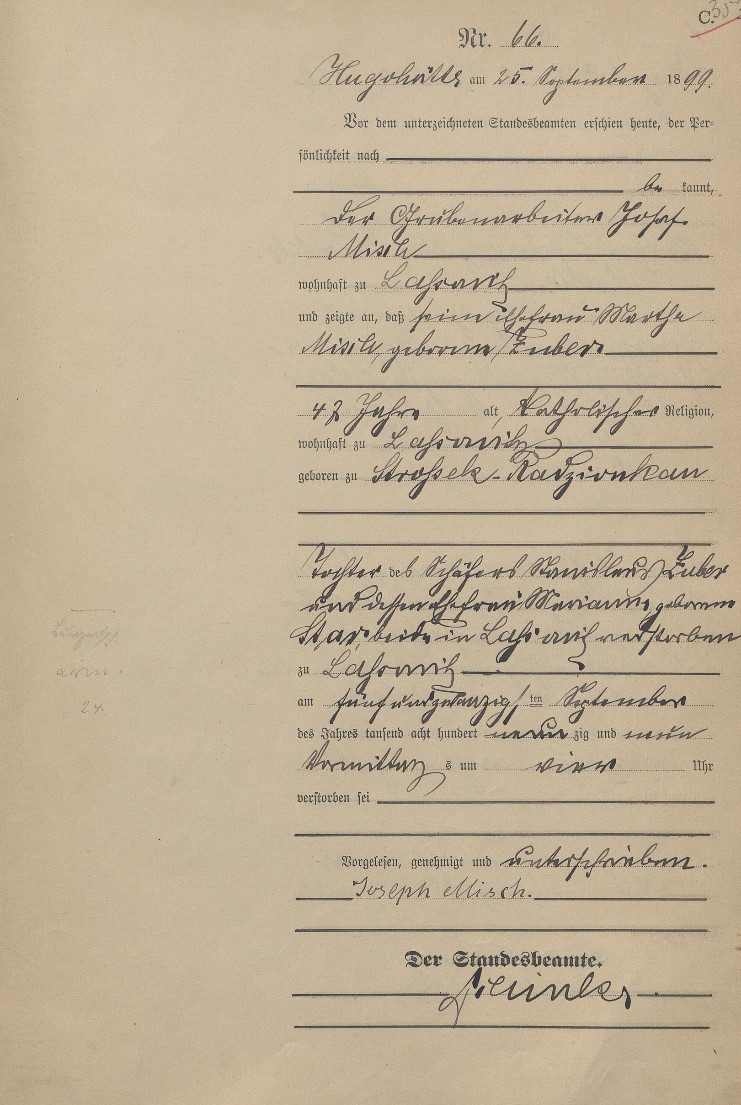 C.
Nr. 66.
Hugohütte am 25. September 1899.
Vor dem unterzeichneten Standesbeamten erschien heute, der Per-
sönlichkeit nach
be kannt,
der Grubenarbeiter Josef
Misch
wohnhaft zu Lassowitz
und zeigte an, daß seine Ehefrau Martha
Misch, geborene Zuber
47 Jahre alt, katholischer Religion,
wohnhaft zu Lassowitz
geboren zu Strossek-Radzionkau
Tochter des Schäfers Stanislaus Zuber
und dessen Ehefrau Marianne geborene
beide in Lassowitz verstorben
zu Lassowitz
am fünfundzwanzigsten September
des Jahres tausend acht hundert neunzig und neun
Vormittags um vier Uhr
verstorben sei
Vorgelesen, genehmigt und unterschrieben.
Joseph Misch.
Der Standesbeamte.